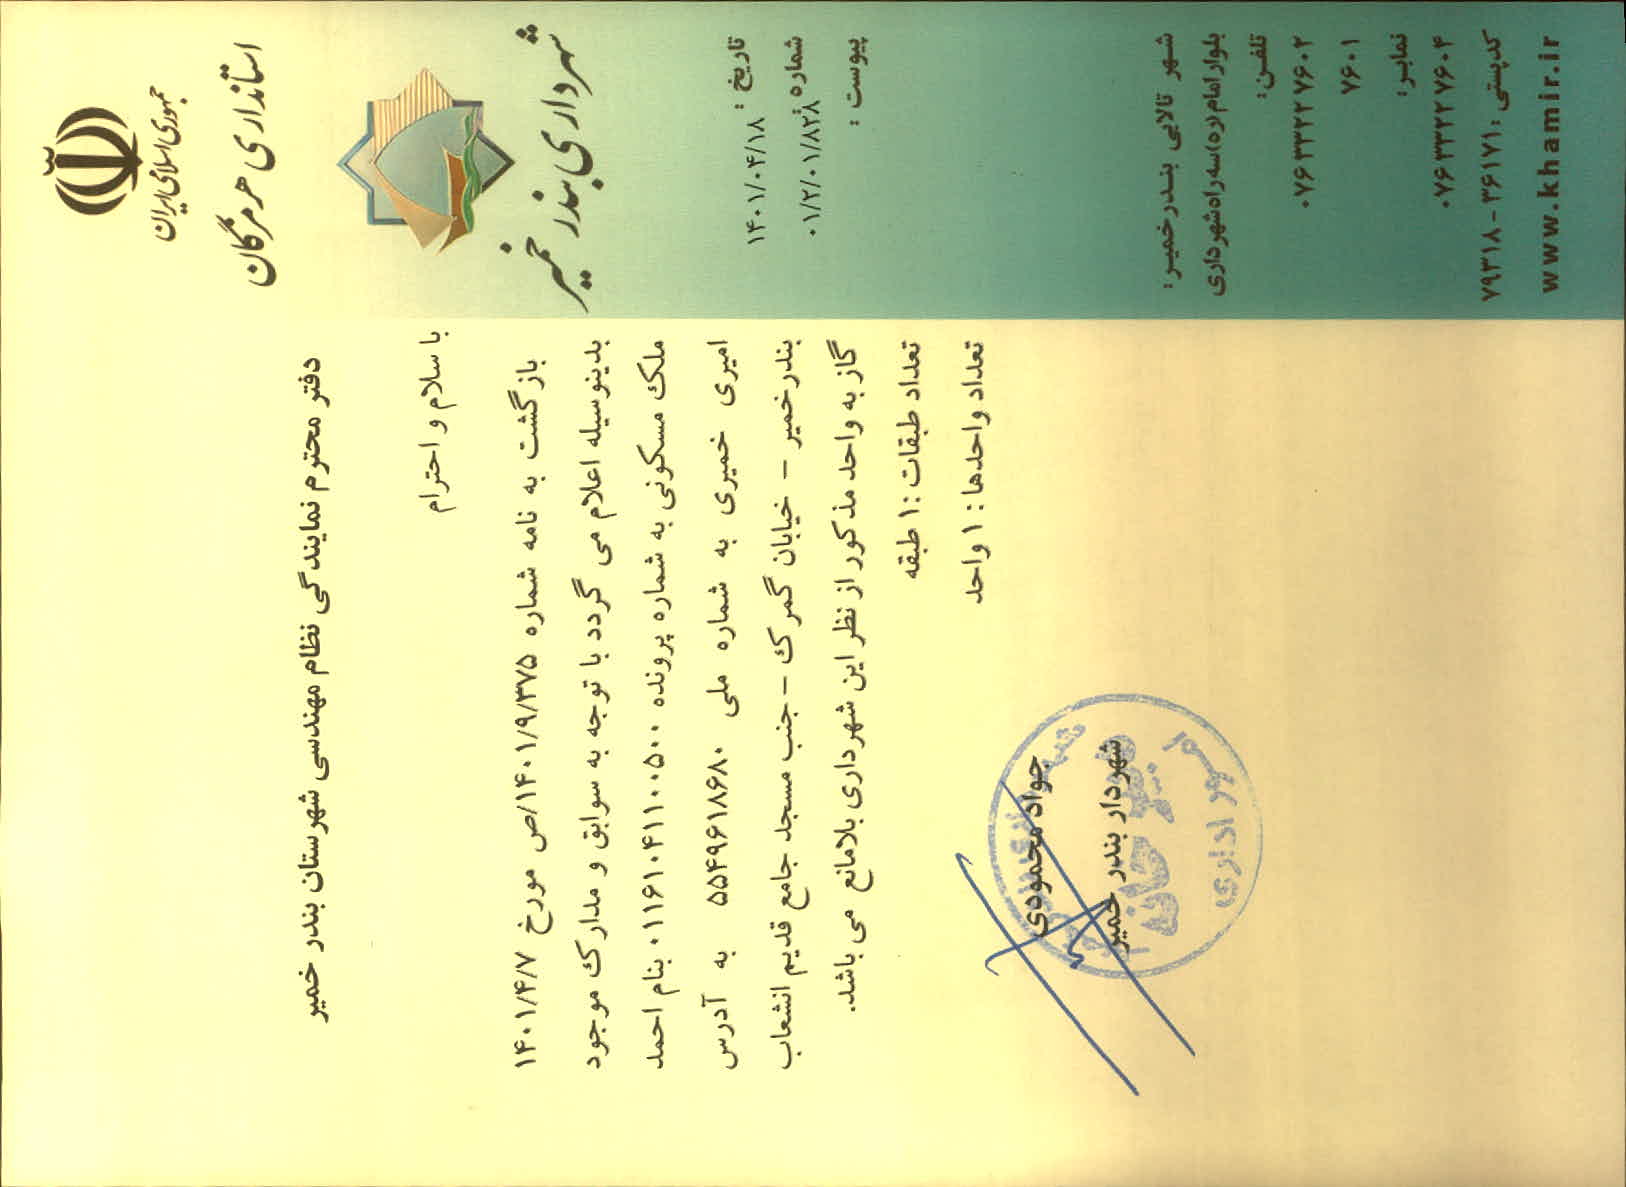 جمهوری اسلامی ایران
استانداری هرمزگان
شهرداری بندر خمیر
تاریخ : ۱۴۰۱/۰۴/۱۸
شماره : ۰۱/۲/۰۱/۸۲۸
پیوست :
دفتر محترم نمایندگی نظام مهندسی شهرستان بندر خمیر
با سلام و احترام
بازگشت به نامه شماره ۱۴۰۱/۹/۳۷۵/ص مورخ ۱۴۰۱/۴/۷
بدینوسیله اعلام می گردد با توجه به سوابق و مدارک موجود
ملک مسکونی به شماره پرونده ۰۱۱۶۱۰۴۱۱۰۰۵۰۰ بنام احمد
امیری خمیری به شماره ملی ۵۵۴۹۶۱۸۶۸۰ به آدرس
بندرخمیر - خیابان گمرک - جنب مسجد جامع قدیم انشعاب
گاز به واحد مذکور از نظر این شهرداری بلامانع می باشد.
تعداد طبقات : ۱ طبقه
تعداد واحدها : ۱ واحد
جواد محمودی
شهردار بندر خمیر
شهر تالابی بندرخمیر :
بلوار امام (ره) سه راه شهرداری
تلفن :
۰۷۶۳۳۲۲۷۶۰۲
۷۶۰۱
نمابر :
۰۷۶۳۳۲۲۷۶۰۴
کدپستی : ۳۶۱۷۱ - ۷۹۳۱۸
www.khamir.ir